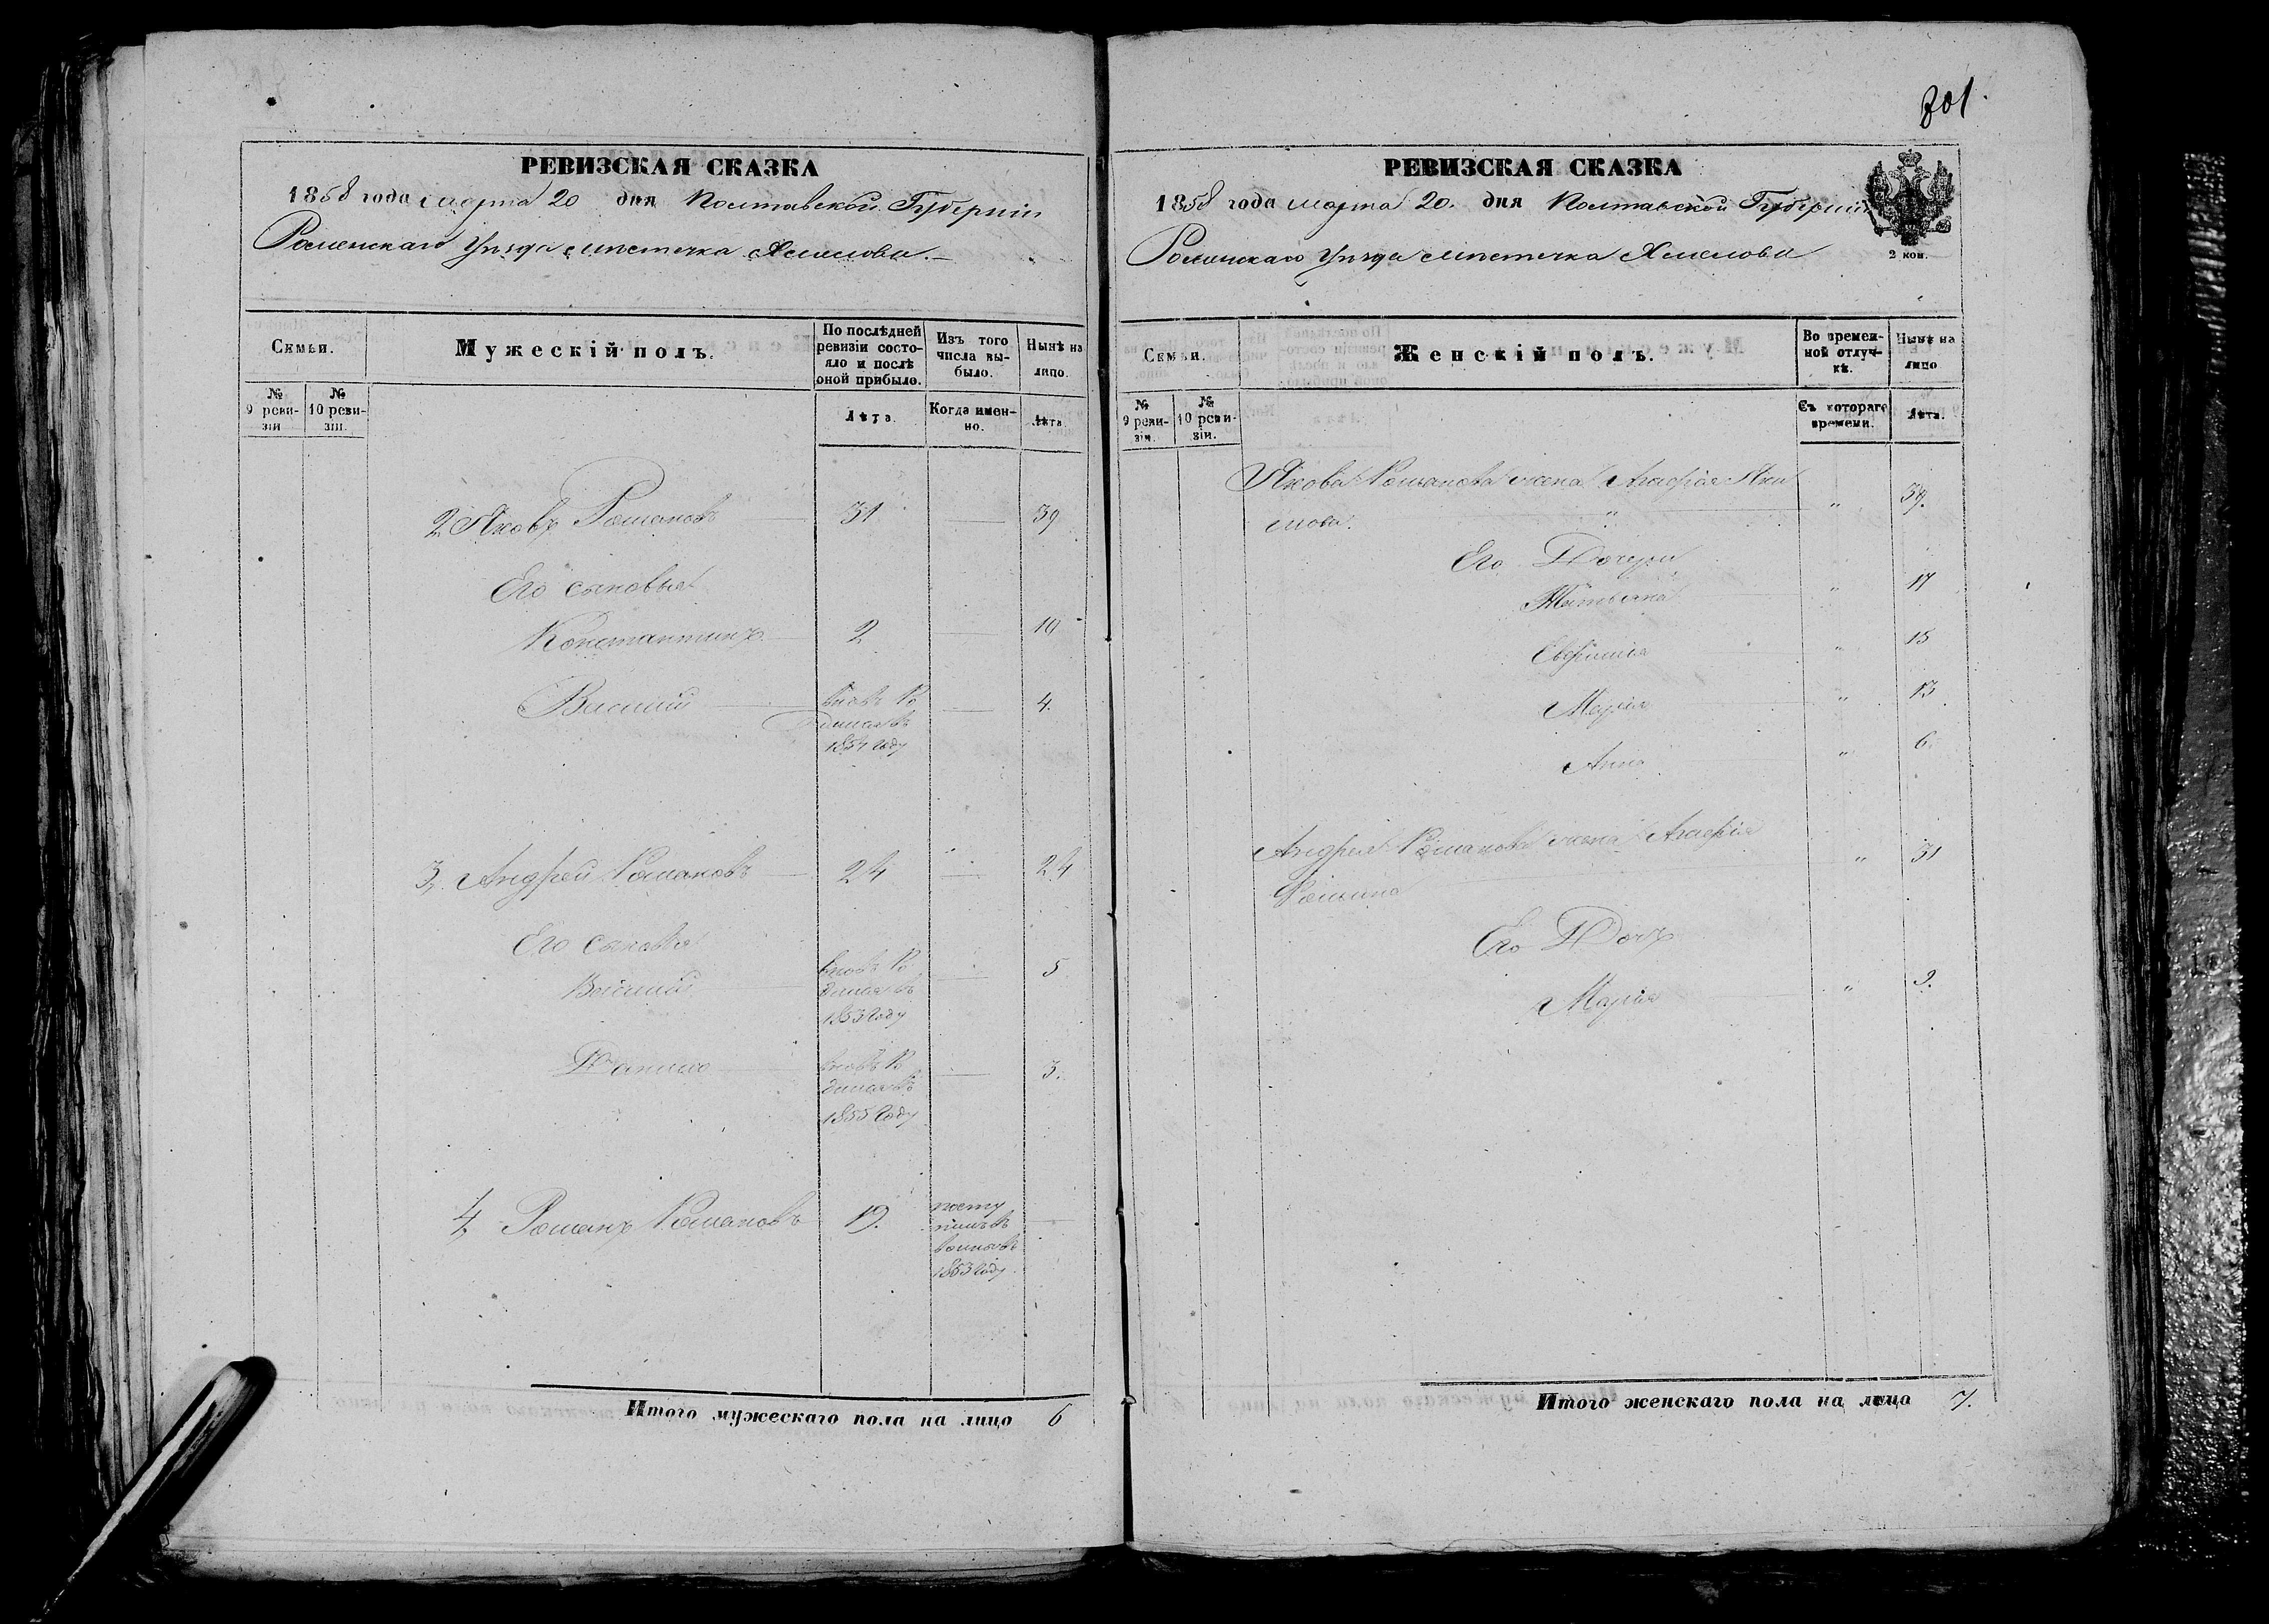 801.
РЕВИЗСКАЯ СКАЗКА
1858 года марта 20 дня Полтавской Губерніи
Роменскаго Уѣзда мѣстечка Хмелова.—
Семьи.
Мужескій полъ.
По послѣдней ревизіи состояло и послѣ оной прибыло.
Изъ того числа выбыло.
Нынѣ на лицо.
№ 9 ревизіи
№ 10 ревизіи.
Лѣта.
Когда именно.
Лѣта
2 Яковъ Романовъ 31 — 39
Его сыновья
Константинъ 2 — 10
Василій вновь ро — 4.
дился въ
1854 году
3, Андрей Романовъ 24 — 24
Его сыновья
Василій вновь ро — 5
дился въ
1853 году
Данило вновь ро — 3.
дился въ
1855 году
4, Романъ Романовъ 19. посту —
пилъ въ
1853 году
Итого мужескаго пола на лицо 6
РЕВИЗСКАЯ СКАЗКА
1858 года марта 20. дня Полтавской Губерніи
Роменскаго Уѣзда мѣстечка Хмелова
2 коп.
Семьи.
Женскій полъ.
Во временной отлучкѣ.
Нынѣ на лицо
№ 9 ревизіи.
№ 10 ревизіи.
Съ котораго времени.
Лѣта.
Якова Романова жена Агафія Яки
мова. " 39.
Его Дочери
Татьяна " 17
Евфимія " 15
Марія " 13
Анна " 6
Андрея Романова жена Агафія
" 31
Его Дочь
Марія " 9.
Итого женскаго пола на лицо 7.